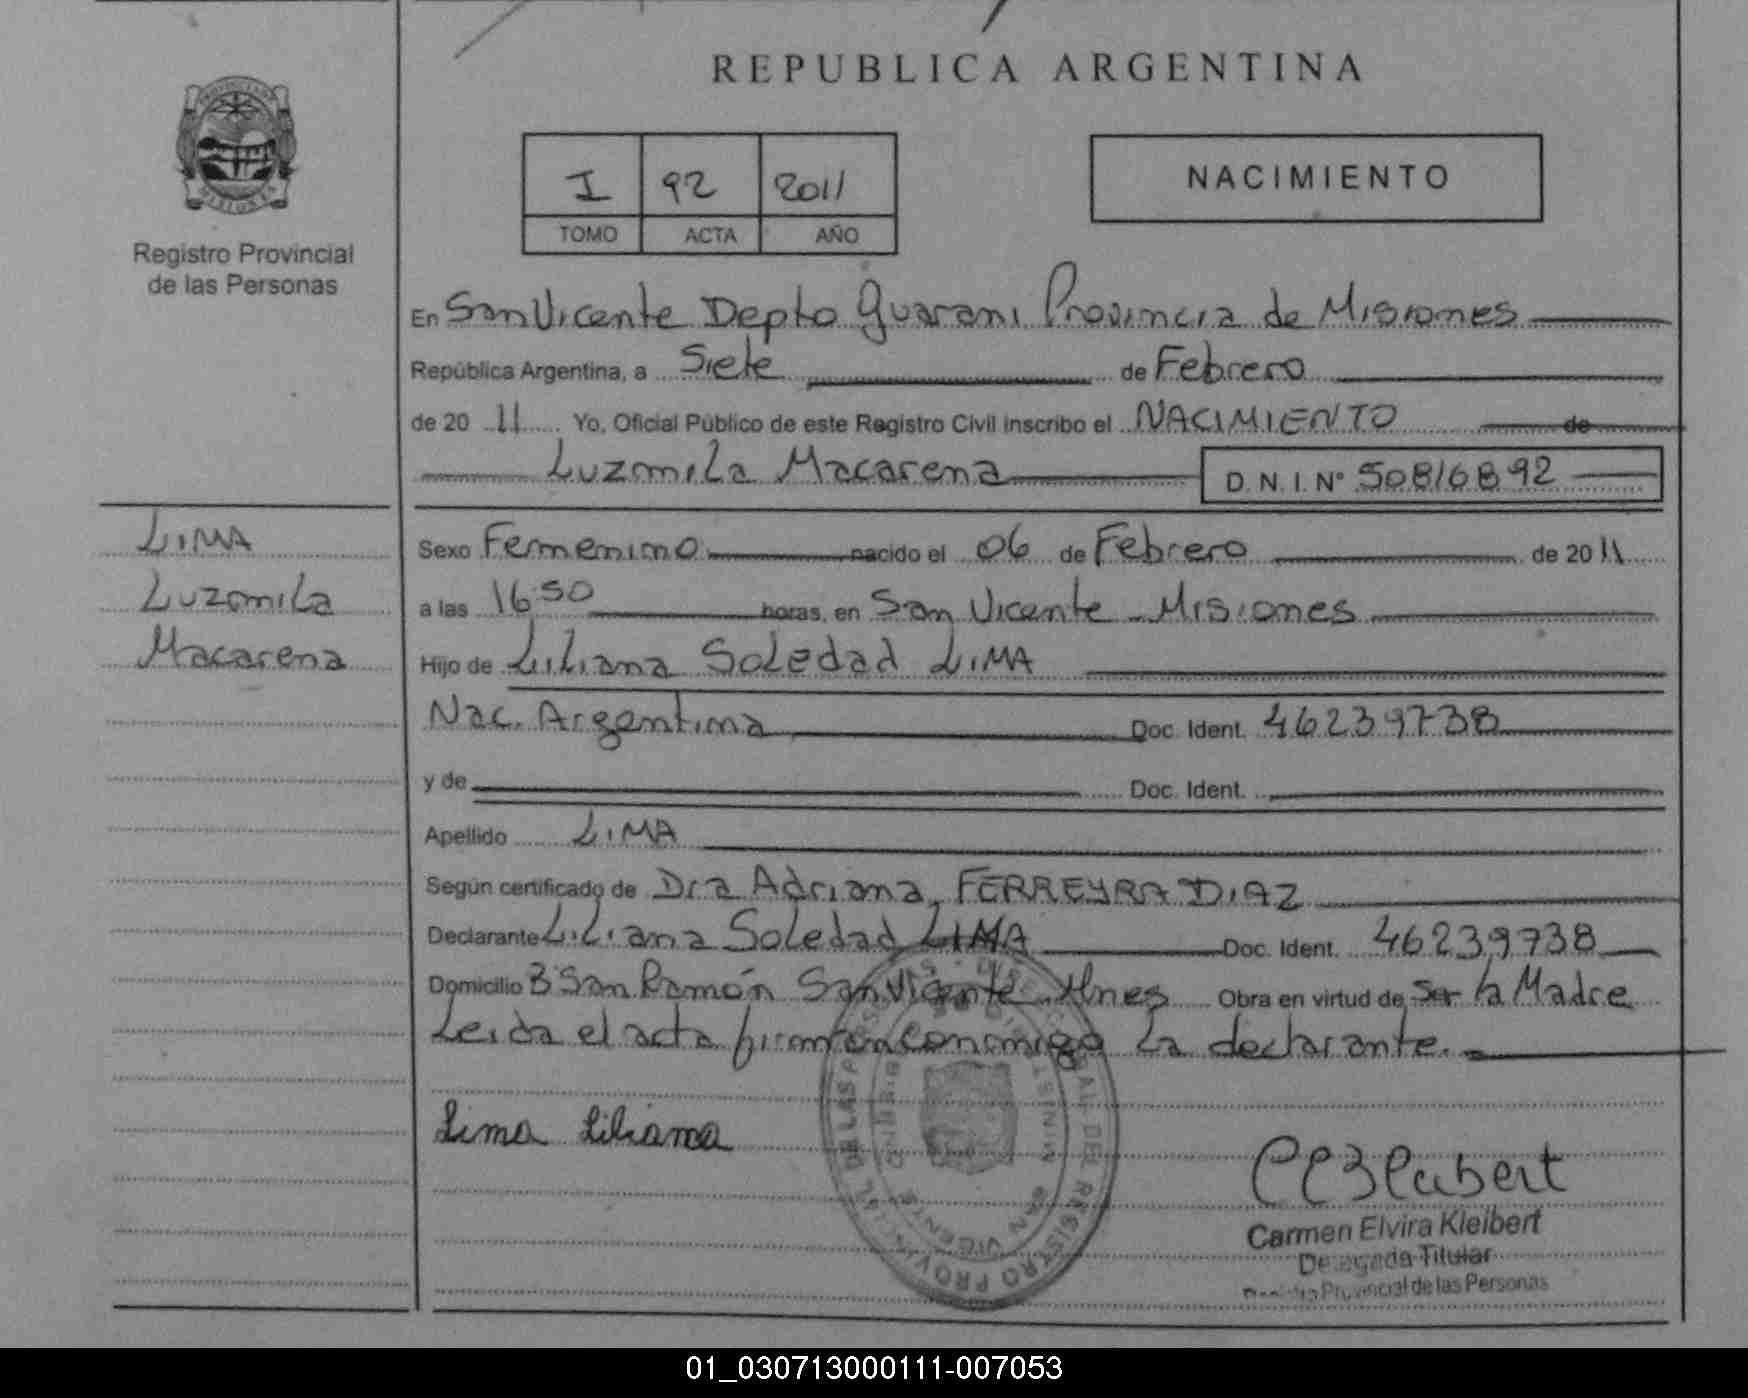 REPUBLICA ARGENTINA
PROVINCIA DE
MISIONES
Registro Provincial
de las Personas
I 92 2011
TOMO ACTA AÑO
NACIMIENTO
En San Vicente Depto Guarani Provincia de Misiones
República Argentina, a Siete de Febrero
de 2011 Yo, Oficial Público de este Registro Civil inscribo el NACIMIENTO de
Luzmila Macarena D.N.I. N° 50816892
LIMA
Luzmila
Macarena
Sexo Femenino nacido el 06 de Febrero de 2011
a las 16 50 horas, en San Vicente - Misiones
Hijo de Liliana Soledad LIMA
Nac. Argentina Doc. Ident. 46239738
y de Doc. Ident.
Apellido LIMA
Según certificado de Dra Adriana FERREYRA DIAZ
Declarante Liliana Soledad LIMA Doc. Ident. 46239738
Domicilio B San Ramón San Vicente Mnes Obra en virtud de Ser la Madre
Leida el acta firman conmigo La declarante.
Lima Liliana
Carmen Elvira Kleibert
Delegada Titular
Registro Provincial de las Personas
REGISTRO PROVINCIAL DE LAS PERSONAS
SAN VICENTE
01_030713000111-007053